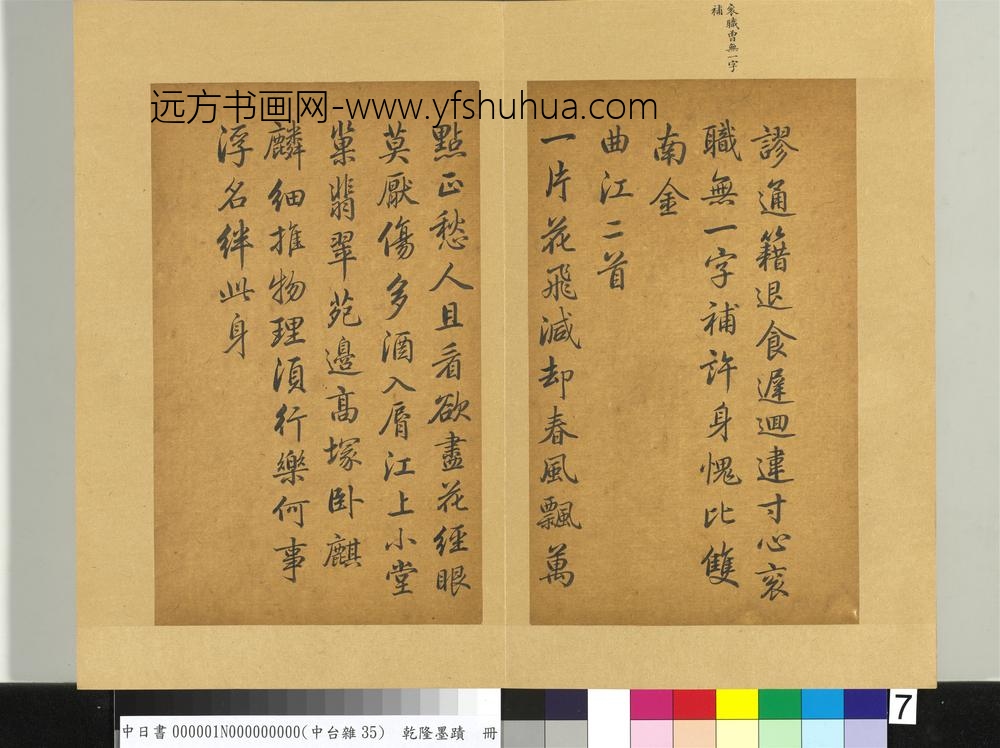 衮職曾無一字
補
远方书画网-www.yfshuhua.com
謬通籍退食遲迴違寸心衮
職無一字補許身愧比雙
南金
曲江二首
一片花飛減却春風飄萬
點正愁人且看欲盡花經眼
莫厭傷多酒入脣江上小堂
巢翡翠苑邊高塚卧麒
麟細推物理須行樂何事
浮名絆此身
中日書 000001N000000000(中台雜 35) 乾隆墨蹟 冊
7